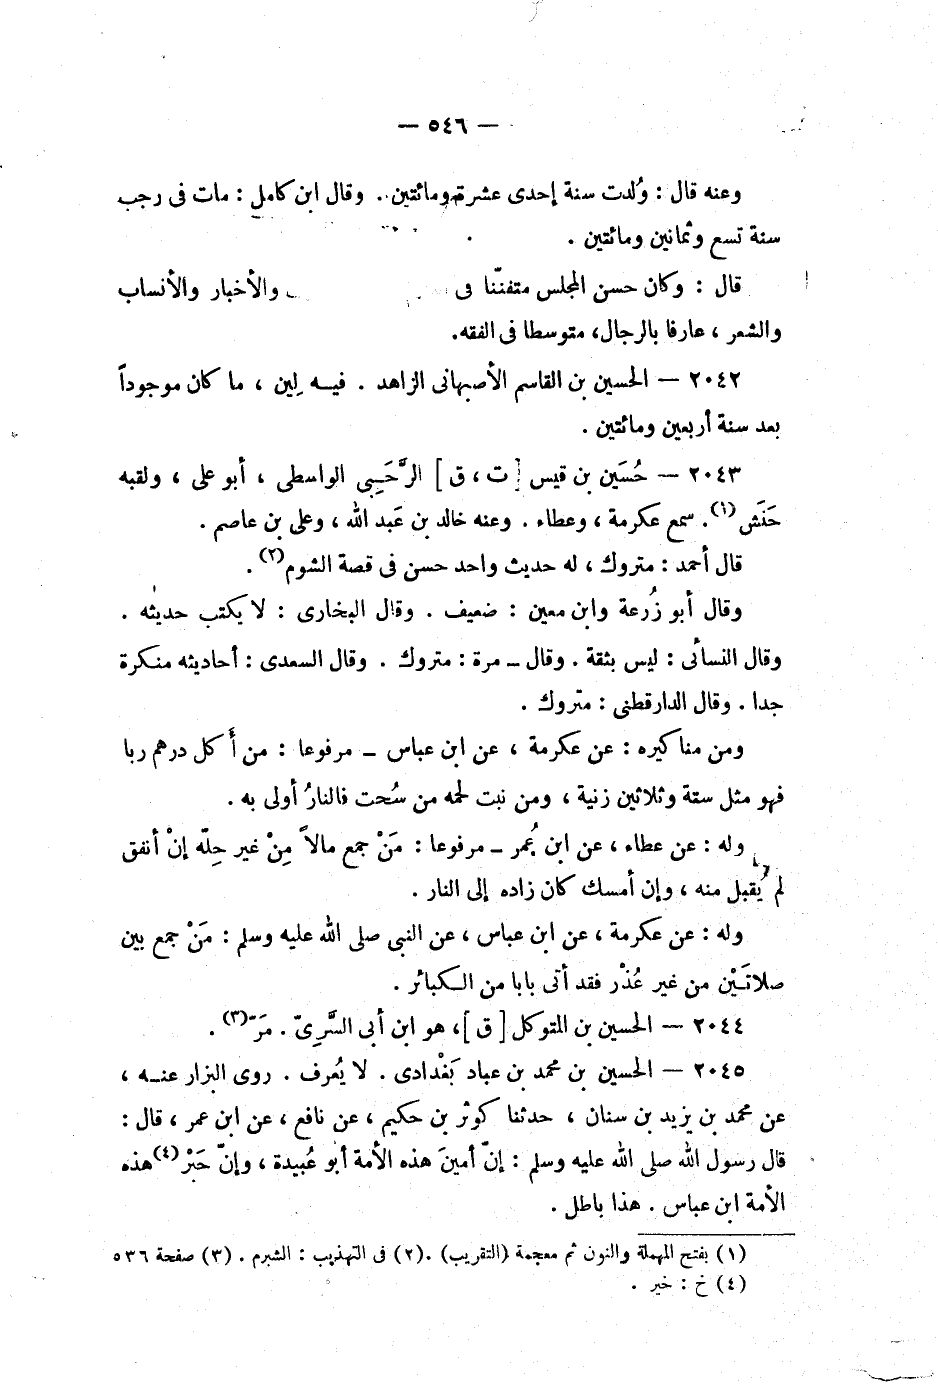 — ٥٤٦ —
وعنه قال : وُلدت سنة إحدى عشرة ومائتين . وقال ابن كامل : مات فى رجب
سنة تسع وثمانين ومائتين .
قال : وكان حسن المجلس متفنّنا فى والأخبار والأنساب
والشعر ، عارفا بالرجال، متوسطا فى الفقه.
٢٠٤٢ — الحسين بن القاسم الأصبهانى الزاهد . فيـه لِين ، ما كان موجوداً
بعد سنة أربعين ومائتين .
٢٠٤٣ — حُسَين بن قيس [ ت ، ق ] الرَّحَبِى الواسطى ، أبو على ، ولقبه
حَنَش (١). سمع عكرمة ، وعطاء . وعنه خالد بن عَبد الله ، وعلى بن عاصم .
قال أحمد : متروك ، له حديث واحد حسن فى قصة الشوم (٢) .
وقال أبو زُرعة وابن معين : ضعيف . وقال البخارى : لا يكتب حديثه .
وقال النسائى : ليس بثقة . وقال ــ مرة : متروك . وقال السعدى : أحاديثه منكرة
جدا . وقال الدارقطنى : متروك .
ومن مناكيره : عن عكرمة ، عن ابن عباس ــ مرفوعا : من أَكل درهم ربا
فهو مثل ستة وثلاثين زنية ، ومن نبت لحمه من سُحت فالنارُ أولى به .
وله : عن عطاء ، عن ابن عُمر ــ مرفوعا : مَنْ جمع مالاً مِنْ غير حِلّه إنْ أنفق
لم يُقبل منه ، وإن أمسك كان زاده إلى النار .
وله : عن عكرمة ، عن ابن عباس ، عن النبى صلى الله عليه وسلم : مَنْ جمع بين
صلاتَـيْن من غير عُذْر فقد أتى بابا من الـكبائر .
٢٠٤٤ — الحسين بن المتوكل [ ق ]، هو ابن أبى السَّرِىّ . مَرّ (٣) .
٢٠٤٥ — الحسين بن محمد بن عباد بَغْدادى . لا يُعرف . روى البزار عنـه ،
عن محمد بن يزيد بن سنان ، حدثنا كوثر بن حكيم ، عن نافع ، عن ابن عمر ، قال :
قال رسول الله صلى الله عليه وسلم : إنّ أمينَ هذه الأمة أبو عُبيدة ، وإنّ حَبْر (٤) هذه
الأمة ابن عباس . هذا باطل .
(١) بفتح المهملة والنون ثم معجمة (التقريب) . (٢) فى التهذيب : الشبرم . (٣) صفحة ٥٣٦
(٤) خ : خير .